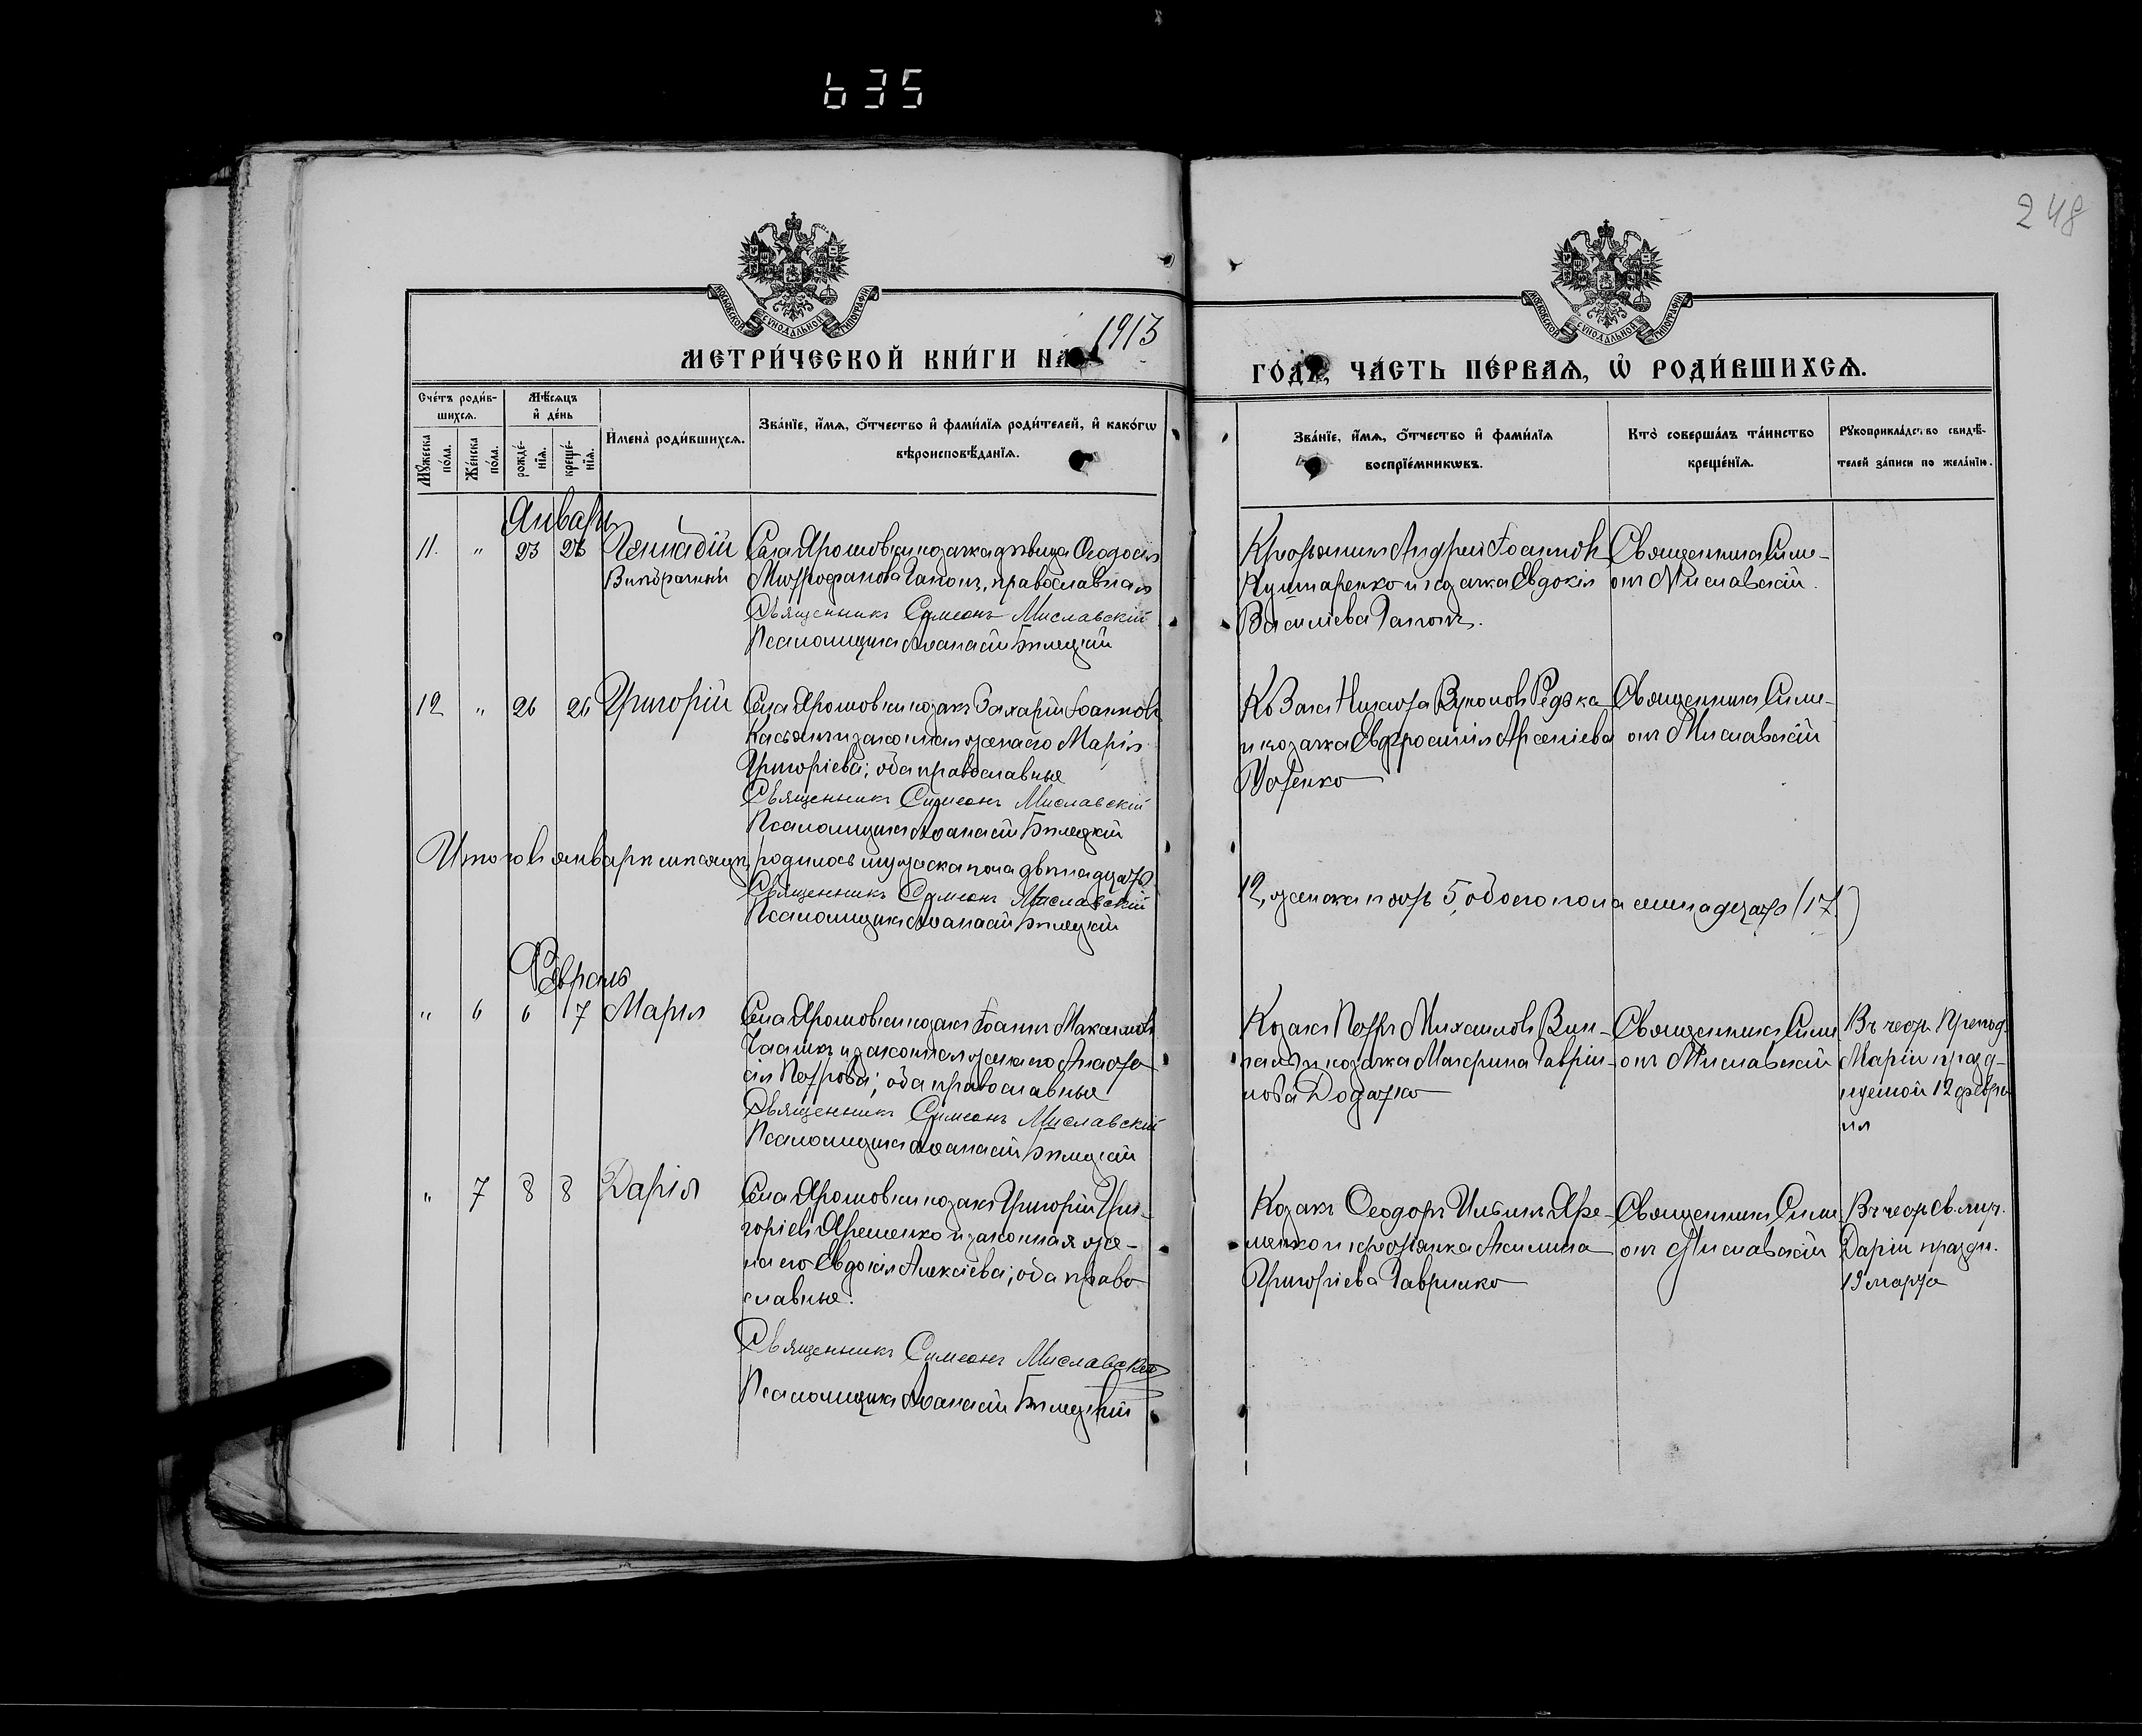 635
248
МОСКОВСКОЙ СѴНОДАЛЬНОЙ ТИПОГРАФІИ
МОСКОВСКОЙ СѴНОДАЛЬНОЙ ТИПОГРАФІИ
МЕТРИ́ЧЕСКОЙ КНИ́ГИ НА 1913
ГО́ДЪ, ЧА́СТЬ ПЕ́РВАЯ, Ѡ РОДИ́ВШИХСѦ.
Сче́тъ роди́в-
шихсѧ.
Мꙋ́жеска
по́ла.
Же́нска
по́ла.
Мѣ́сѧцъ
и҆ де́нь
рожде́-
нїѧ.
креще́-
нїѧ.
И҆мена̀ роди́вшихсѧ.
Зва́нїе, и҆́мѧ, ѻ҆́тчество и҆ фами́лїѧ роди́телей, и҆ како́гѡ
вѣроисповѣ́данїѧ.
Зва́нїе, и҆́мѧ, ѻ҆́тчество и҆ фами́лїѧ
воспрїе́мникѡвъ.
Кто̀ соверша́лъ та́инство
креще́нїѧ.
Рꙋкоприкла́дство свидѣ́-
телей за́писи по жела́нїю.
Январь
11. " 23 26 Геннадій
Внѣбрачный
Села Ярошовки козачка дѣвица Ѳеодосія
Митрофанова Гапонъ, православная
Священникъ Симеонъ Миславскій
Псаломщикъ Аѳанасій Билецкій
Крестьянинъ Андрей Іоанновъ
Кушнаренко и козачка Евдокія
Василіева Гапонъ.
Священникъ Симе-
онъ Миславскій.
12 " 26 26 Григорій
Села Ярошовки козакъ Захарій Іоанновъ
Касьянъ и законная жена его Марія
Григоріева; оба православные
Священникъ Симеонъ Миславскій
Псаломщикъ Аѳанасій Билецкій
Козакъ Никита Вуколовъ Редька
и козачка Евфросинія Арсеніева
Священникъ Симе-
онъ Миславскій
Итого въ январѣ мѣсяцѣ родилось мужеска пола двѣнадцать
12, женска пять 5, обоего пола семнадцать (17)
Священникъ Симеонъ Миславскій
Псаломщикъ Аѳанасій Билецкій
Февраль
" 6 6 7 Марія
Села Ярошовки козакъ Іоаннъ Максимовъ
и законная жена его Анаста
сія Петрова; оба православные
Священникъ Симеонъ Миславскій
Псаломщикъ Аѳанасій Билецкій
Козакъ Петръ Михаиловъ Вин-
и козачка Макрина Гаврiи-
лова Додатко
Священникъ Симе
онъ Миславскій
Въ честь Препод.
Маріи празд-
нуемой 12 февра
ля
" 7 8 8 Дарія
Села Ярошовки козакъ Григорій Гри-
горіевъ Яременко и законная же-
на его Евдокія Алексіева; оба право
славные.
Священникъ Симеонъ Миславскій
Псаломщикъ Аѳанасій Билецкій
Козакъ Ѳеодоръ Ильинъ Яре-
менко и крестьянка Акилина
Григоріева Гавришко
Священникъ Симе
онъ Миславскій
Въ честь св. муч.
Даріи праздн.
19 марта